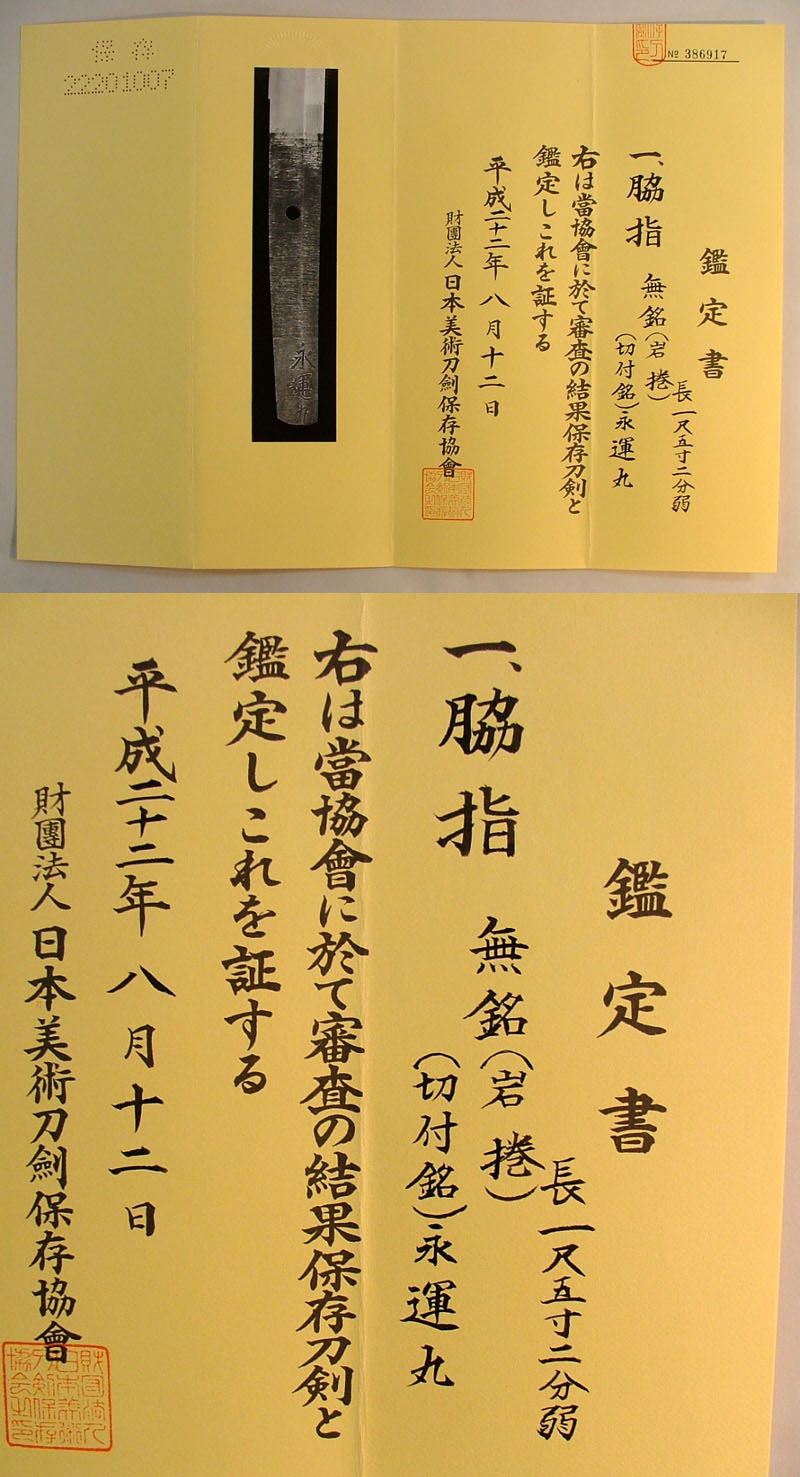 № 386917
鑑定書
長一尺五寸二分弱
一、脇指 無銘(岩捲)
(切付銘)永運丸
右は當協會に於て審査の結果保存刀剣と
鑑定しこれを証する
平成二十二年八月十二日
財團法人日本美術刀劍保存協會
永運
保存
22201007
鑑定書
長一尺五寸二分弱
一、脇指 無銘(岩捲)
(切付銘)永運丸
右は當協會に於て審査の結果保存刀剣と
鑑定しこれを証する
平成二十二年八月十二日
財團法人日本美術刀劍保存協會